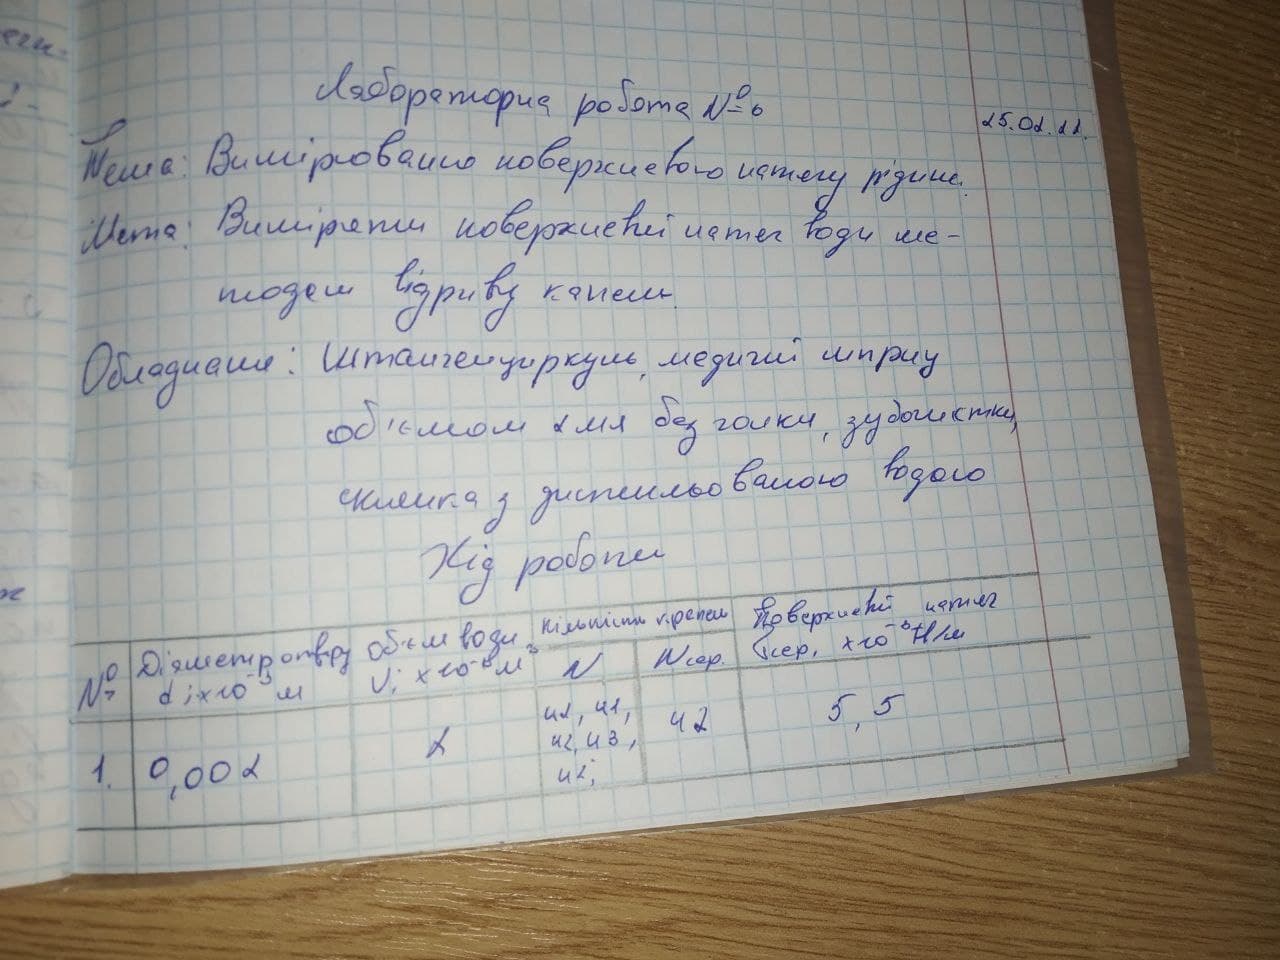 Лабораторна робота №6
25.02.22.
Тема: Вимірювання поверхневого натягу рідини.
Мета: Виміряти поверхневий натяг води ме-
тодом відриву капель.
Обладнання: Штангенциркуль, медичий шприц
об'ємом 2 мл без голки, зубочистки,
склянка з дистильованою водою
Хід роботи
№ Діаметр отвору d; ×10⁻³ м Об'єм води V; ×10⁻⁶ м³ Кількість крапель N Nсер. Поверхневий натяг σсер, ×10⁻³ Н/м
1. 0,002 2 42, 41, 42, 43, 42; 42 5,5